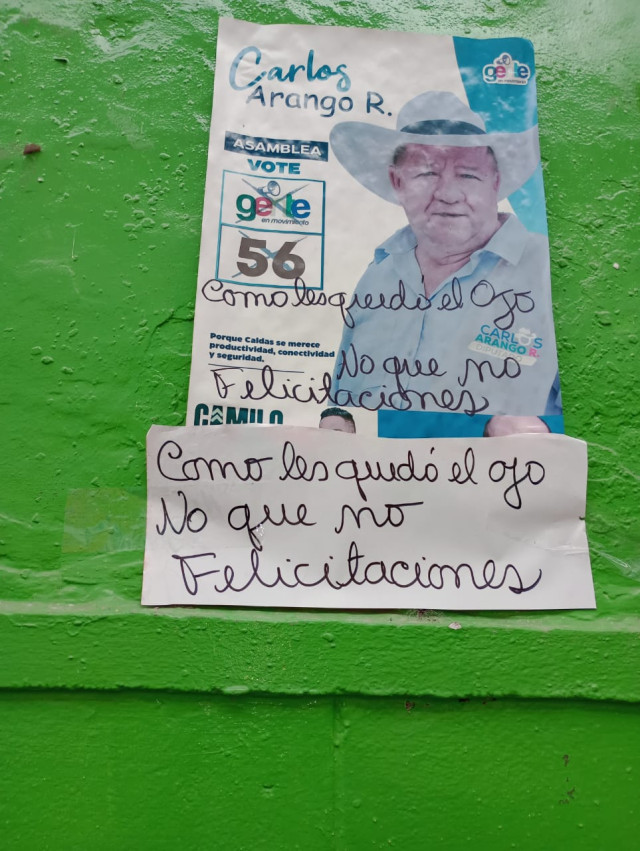 Carlos
Arango R.
gente
en movimiento
ASAMBLEA
VOTE
gente
en movimiento
56
Como les quedó el Ojo
CARLOS
ARANGO R.
Porque Caldas se merece
productividad, conectividad
y seguridad.
No que no
Felicitaciones
CAMILO
Como les quedó el ojo
No que no
Felicitaciones